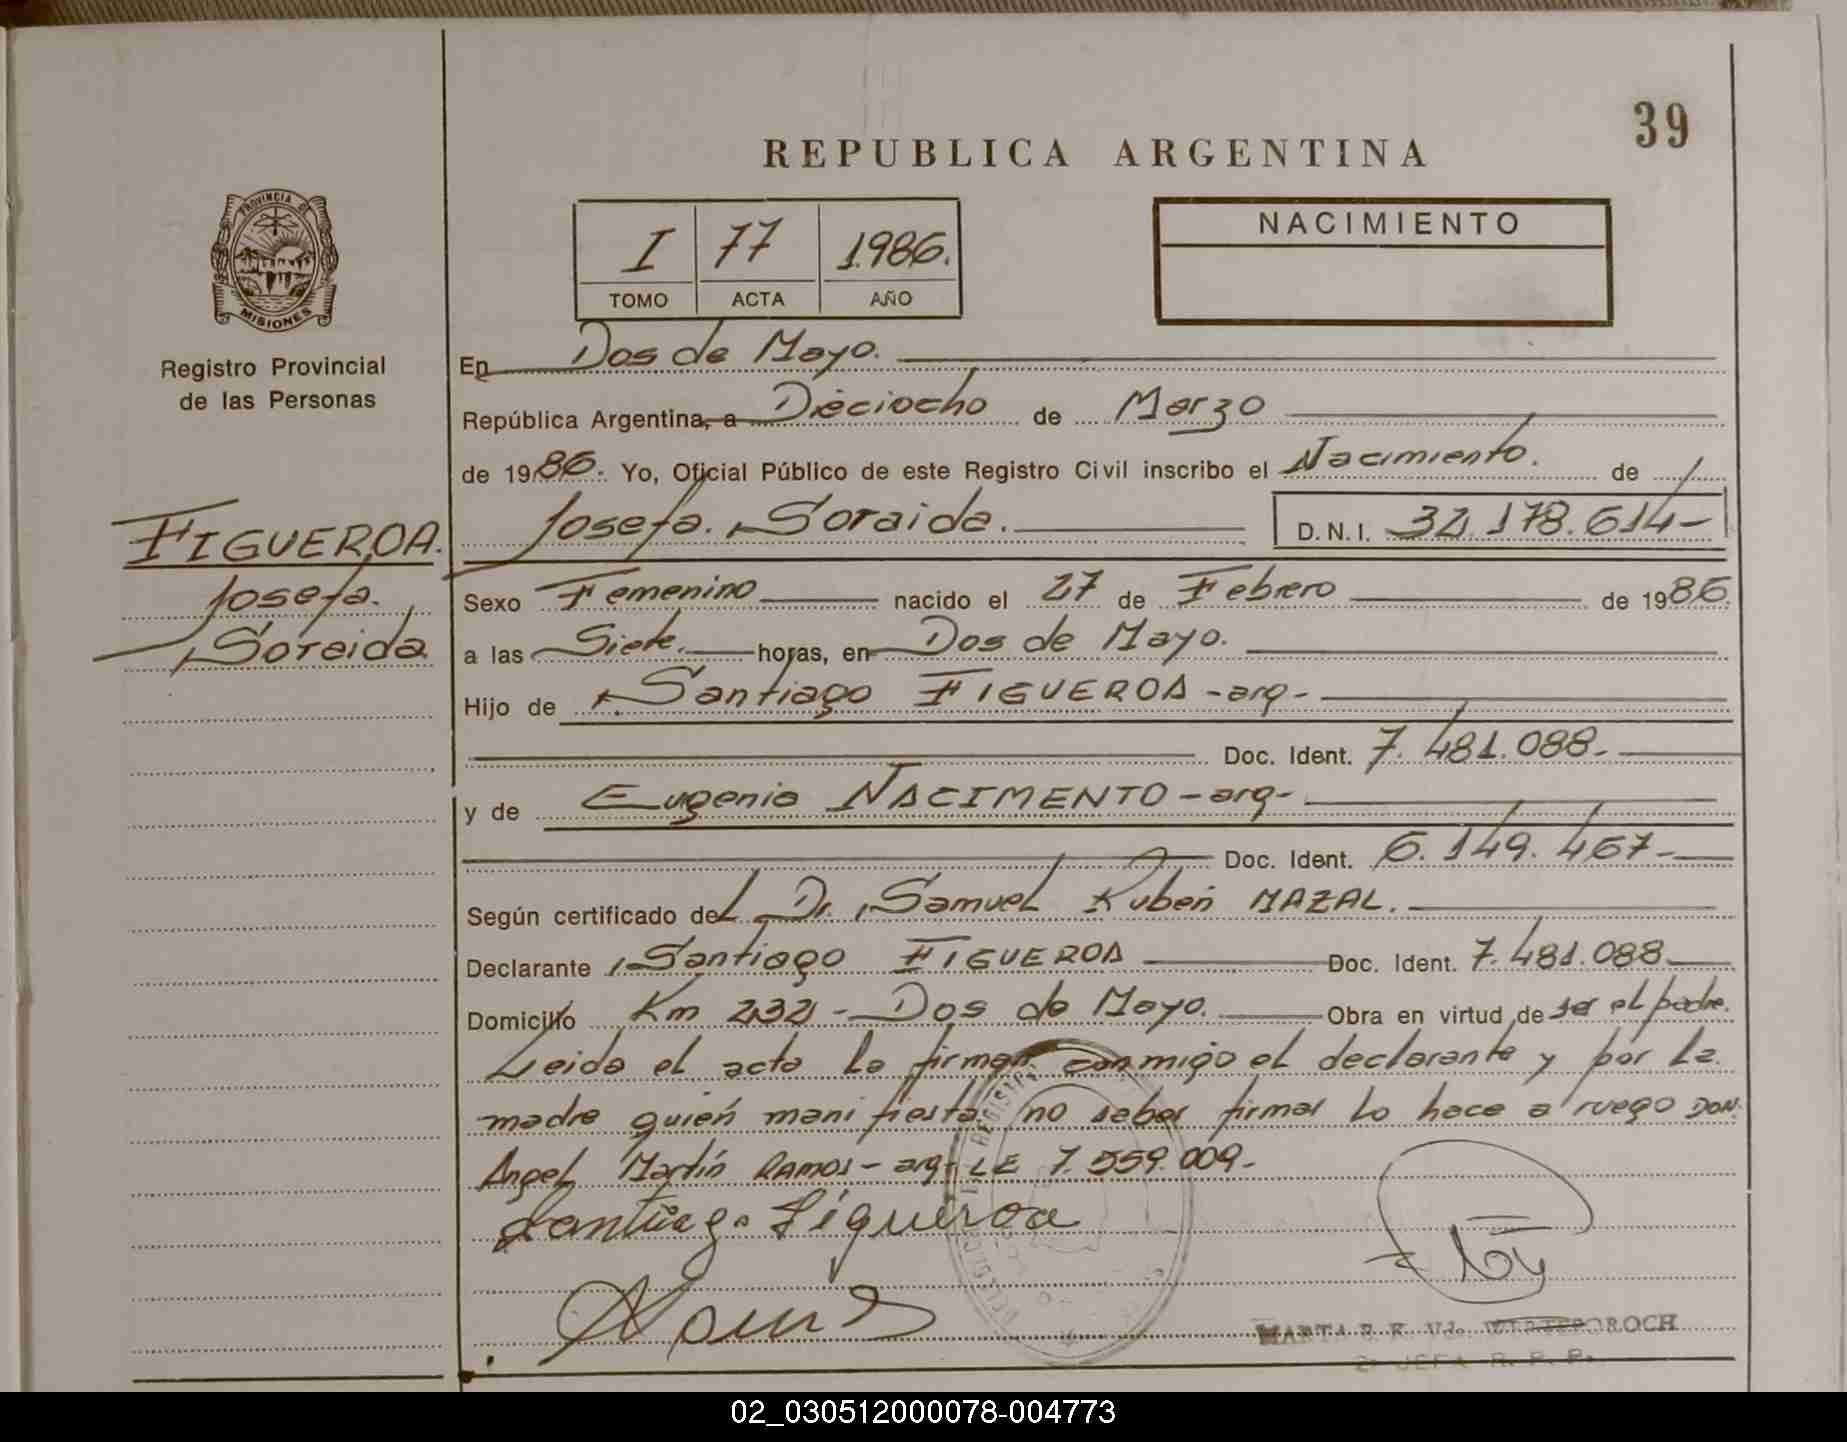 39
REPUBLICA ARGENTINA
PROVINCIA DE
MISIONES
Registro Provincial
de las Personas
I 77 1.986.
TOMO ACTA AÑO
NACIMIENTO
En Dos de Mayo.
República Argentina, a Dieciocho de Marzo
de 1986. Yo, Oficial Público de este Registro Civil inscribo el Nacimiento. de
Josefa. Soraida. D.N.I. 32.178.614-
FIGUEROA.
Josefa.
Soraida
Sexo Femenino nacido el 27 de Febrero de 1986.
a las Siete. horas, en Dos de Mayo.
Hijo de Santiago FIGUEROA -arg-
Doc. Ident. 7.481.088-
y de Eugenia NACIMENTO -arg-
Doc. Ident. 6.149.467-
Según certificado del Dr. Samuel Rubén MAZAL.
Declarante Santiago FIGUEROA Doc. Ident. 7.481.088
Domicilio Km 232 - Dos de Mayo. Obra en virtud de ser el padre.
Leida el acta la firman conmigo el declarante y por la
madre quién manifiesta no saber firmar lo hace a ruego DON.
Angel Martín RAMOS - arg- LE 7.559.009-
Santiago Figueroa
MARTA
2 JEFA R. P. P.
02_030512000078-004773